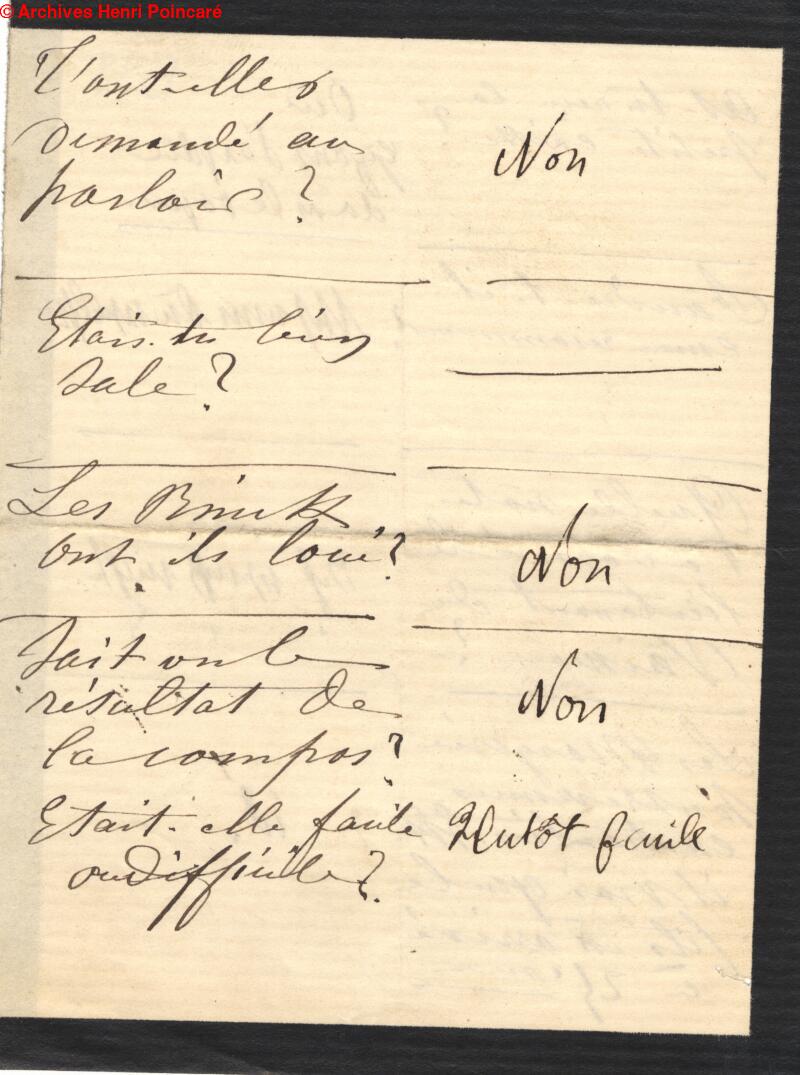 © Archives Henri Poincaré
T'ont-elles
demandé au
parloir ?
Non
Etais-tu bien
sale ?
Les
ont-ils loué ?
Non
Sait on le
résultat de
la compos ?
Non
Etait-elle facile
ou difficile ?
Plutôt facile